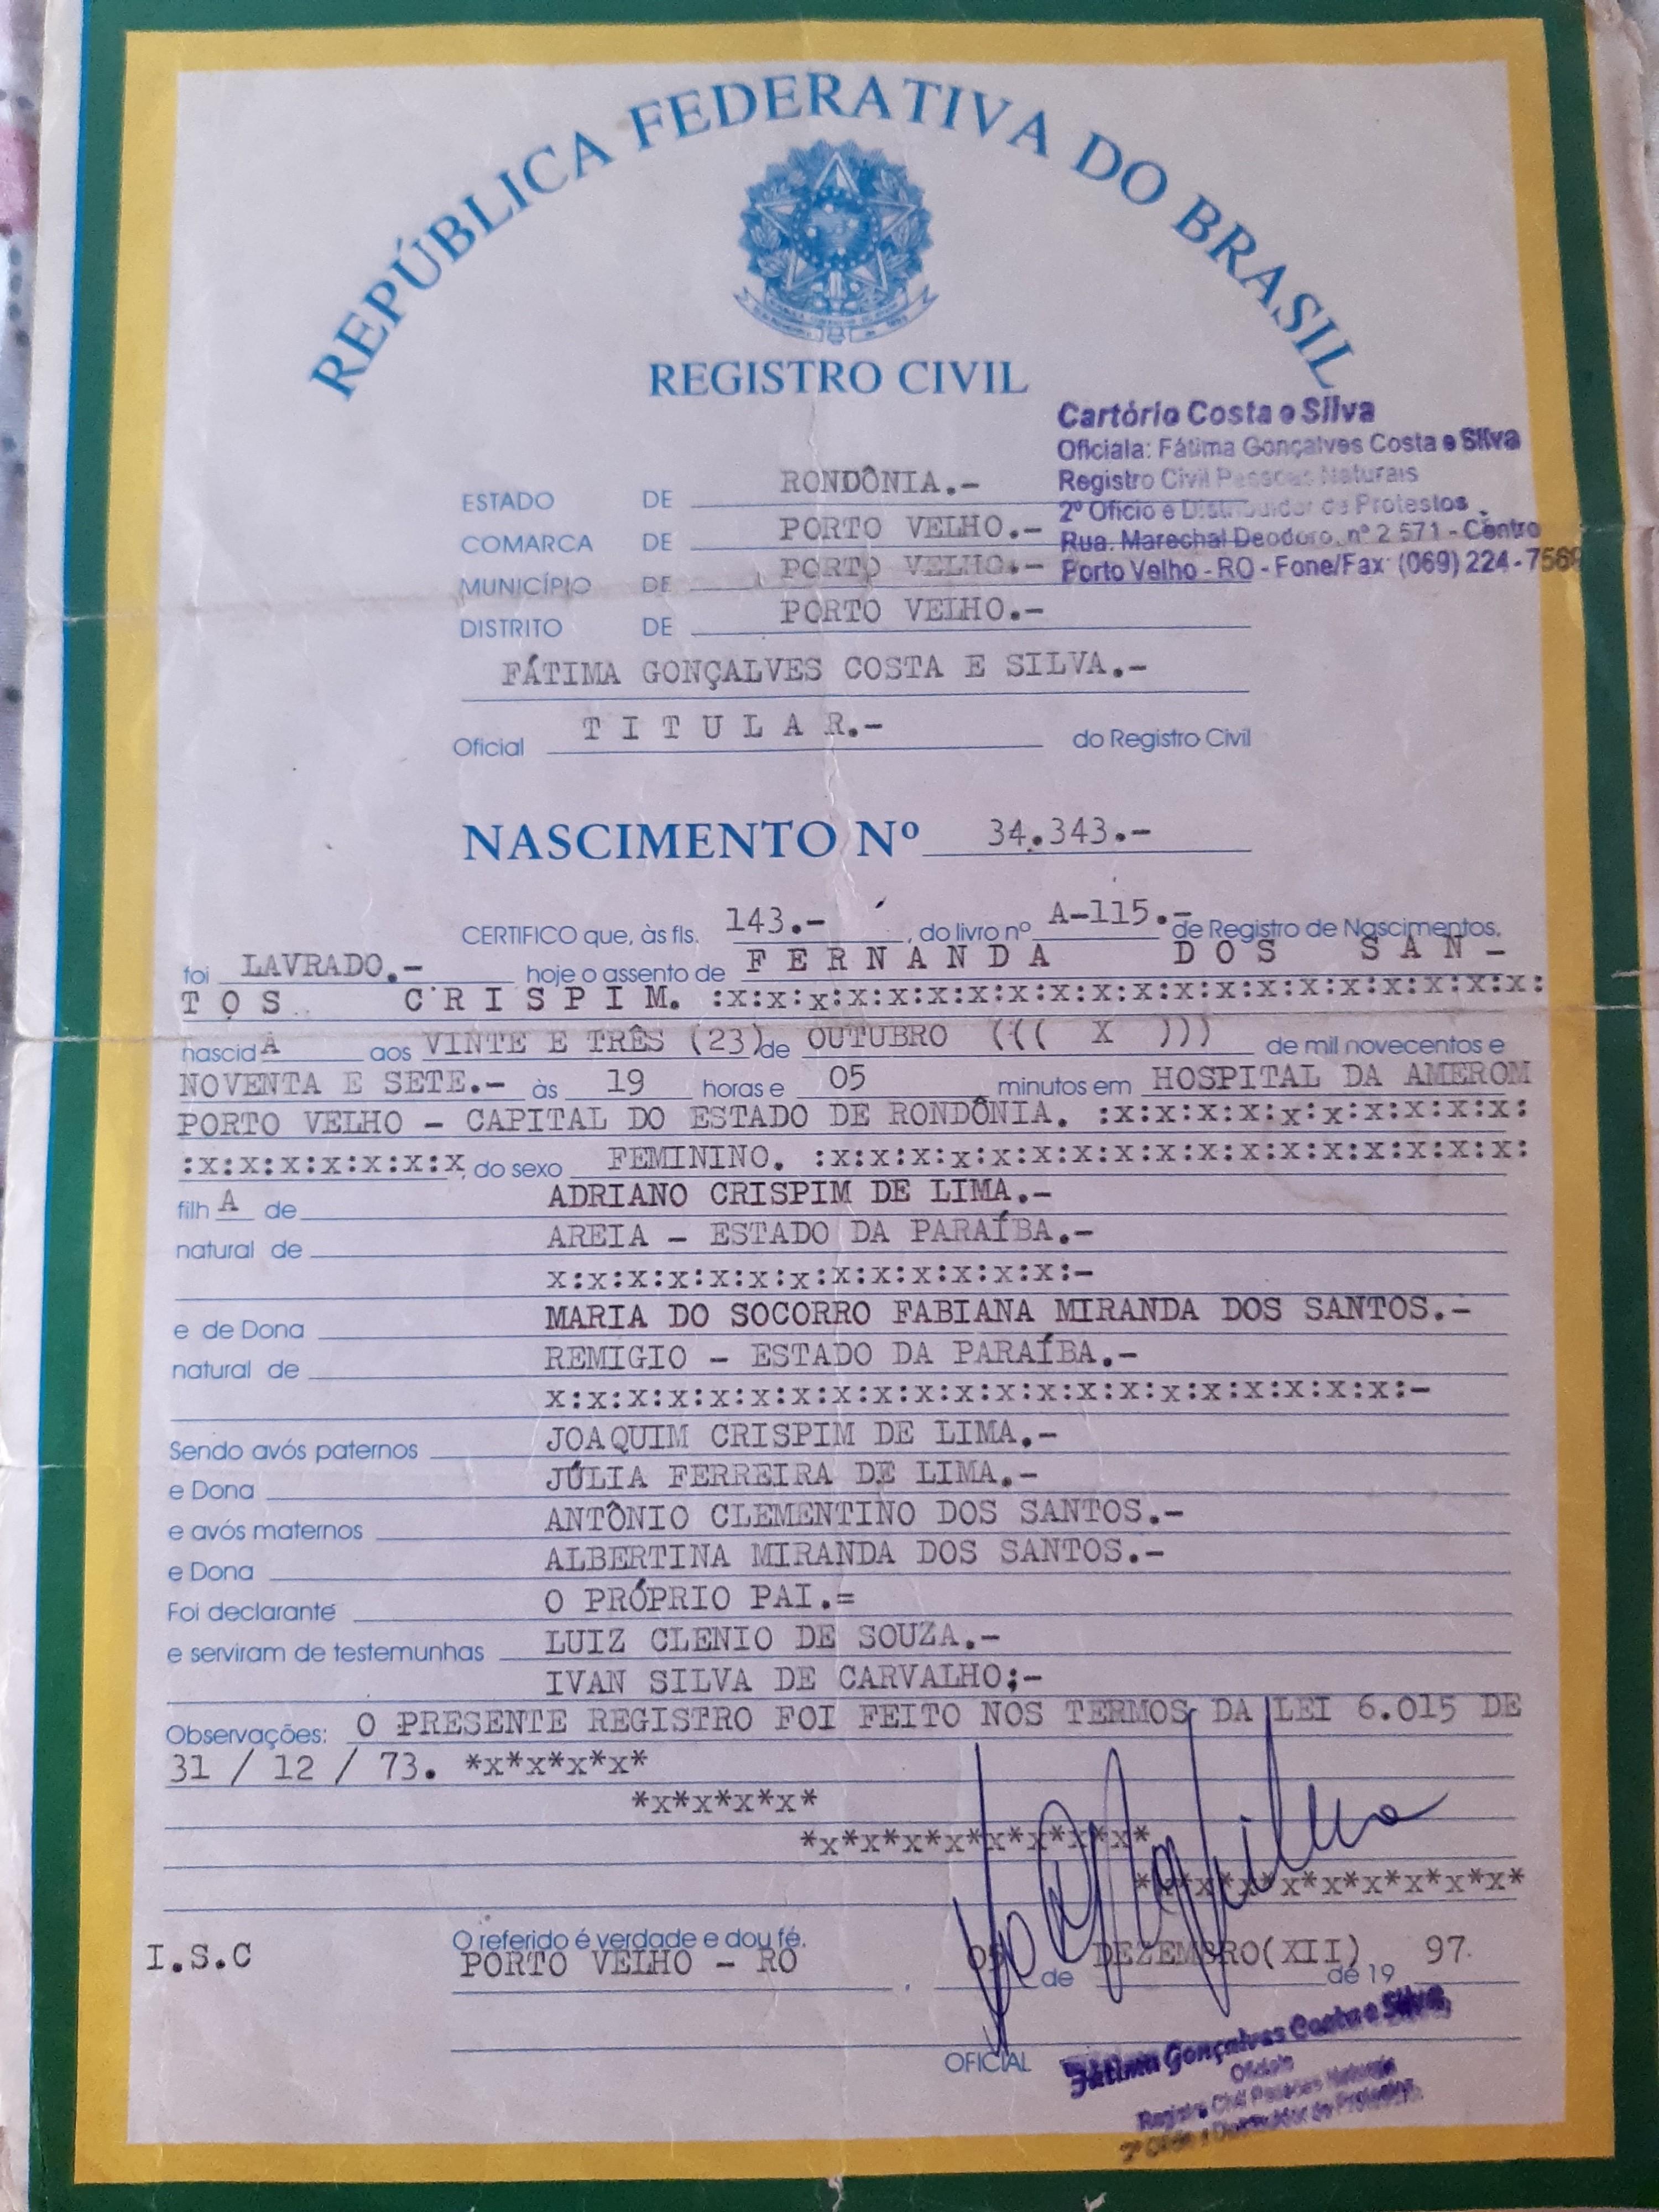 REPÚBLICA FEDERATIVA DO BRASIL
REGISTRO CIVIL
Cartório Costa e Silva
Oficiala: Fátima Gonçalves Costa e Silva
Registro Civil Pessoas Naturais
2º Oficio e Distribuidor de Protestos
Rua. Marechal Deodoro, nº 2 571 - Centro
Porto Velho - RO - Fone/Fax: (069) 224-7569
ESTADO DE RONDÔNIA.-
COMARCA DE PORTO VELHO.-
MUNICÍPIO DE PORTO VELHO.-
DISTRITO DE PORTO VELHO.-
FÁTIMA GONÇALVES COSTA E SILVA.-
Oficial T I T U L A R.- do Registro Civil
NASCIMENTO Nº 34.343.-
CERTIFICO que, às fls. 143.- , do livro nº A-115.- de Registro de Nascimentos,
foi LAVRADO.- hoje o assento de F E R N A N D A D O S S A N -
T O S C R I S P I M. :x:x:x:x:x:x:x:x:x:x:x:x:x:x:x:x:x:x:x:x:
nascid A aos VINTE E TRÊS (23) de OUTUBRO ((( X ))) de mil novecentos e
NOVENTA E SETE.- às 19 horas e 05 minutos em HOSPITAL DA AMEROM
PORTO VELHO - CAPITAL DO ESTADO DE RONDÔNIA. :x:x:x:x:x:x:x:x:x:x:
:x:x:x:x:x:x:x, do sexo FEMININO. :x:x:x:x:x:x:x:x:x:x:x:x:x:x:x:x:x:
filh A de ADRIANO CRISPIM DE LIMA.-
natural de AREIA - ESTADO DA PARAÍBA.-
x:x:x:x:x:x:x:x:x:x:x:x:x:-
e de Dona MARIA DO SOCORRO FABIANA MIRANDA DOS SANTOS.-
natural de REMIGIO - ESTADO DA PARAÍBA.-
x:x:x:x:x:x:x:x:x:x:x:x:x:x:x:x:x:x:x:x:x:-
Sendo avós paternos JOAQUIM CRISPIM DE LIMA.-
e Dona JÚLIA FERREIRA DE LIMA.-
e avós maternos ANTÔNIO CLEMENTINO DOS SANTOS.-
e Dona ALBERTINA MIRANDA DOS SANTOS.-
Foi declarante O PRÓPRIO PAI.=
e serviram de testemunhas LUIZ CLENIO DE SOUZA.-
IVAN SILVA DE CARVALHO;-
Observações: O PRESENTE REGISTRO FOI FEITO NOS TERMOS DA LEI 6.015 DE
31 / 12 / 73. *x*x*x*x*
*x*x*x*x*
*x*x*x*x*x*x*x*x*
*x*x*x*x*x*x*x*x*x*
O referido é verdade e dou fé.
I.S.C PORTO VELHO - RO , 05 de DEZEMBRO(XII) de 19 97.
OFICIAL
Fátima Gonçalves Costa e Silva
Oficiala
Registro Civil Pessoas Naturais
2º Oficio e Distribuidor de Protestos